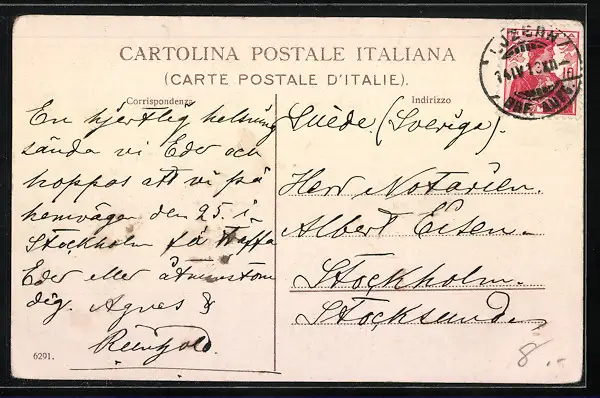 CARTOLINA POSTALE ITALIANA
(CARTE POSTALE D'ITALIE).
Corrispondenza
En hjertlig helsning
sända vi Eder och
hoppas att vi på
hemvägen den 25. i
Stockholm få träffa
Eder eller åtminstone
dig. Agnes &
Reinhold.
6291.
Indirizzo
Suède. (Sverige).
Herr Notarien.
Albert Eisen.
Stockholm.
Stocksund.
8.-
LUZERN
10